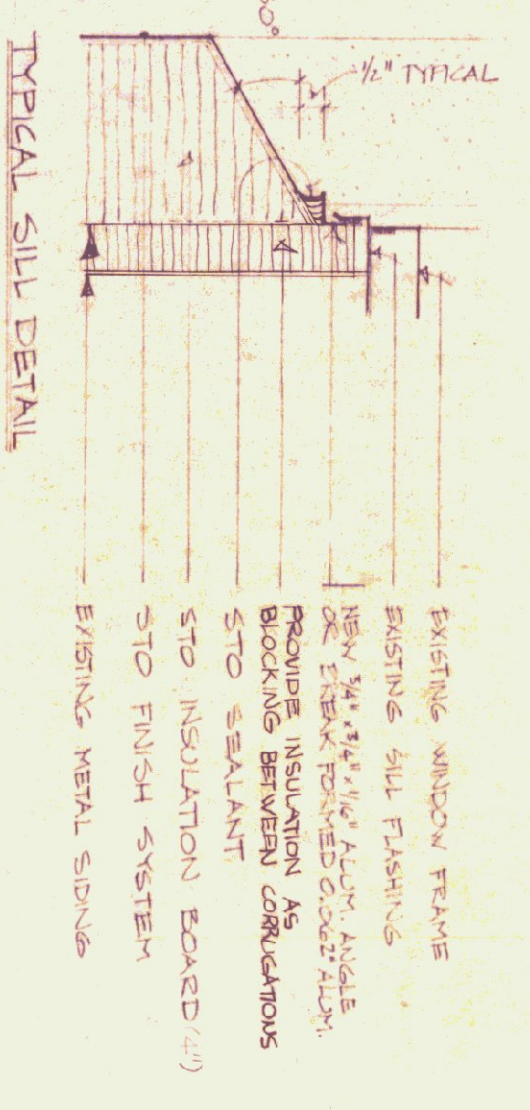 EXISTING WINDOW FRAME
EXISTING SILL FLASHING
NEW 3/4" x 3/4" x 1/16" ALUM. ANGLE
OR BREAK FORMED 0.062" ALUM.
PROVIDE INSULATION AS
BLOCKING BETWEEN CORRUGATIONS
STO SEALANT
STO INSULATION BOARD (4")
STO FINISH SYSTEM
EXISTING METAL SIDING
1/2" TYPICAL
TYPICAL SILL DETAIL